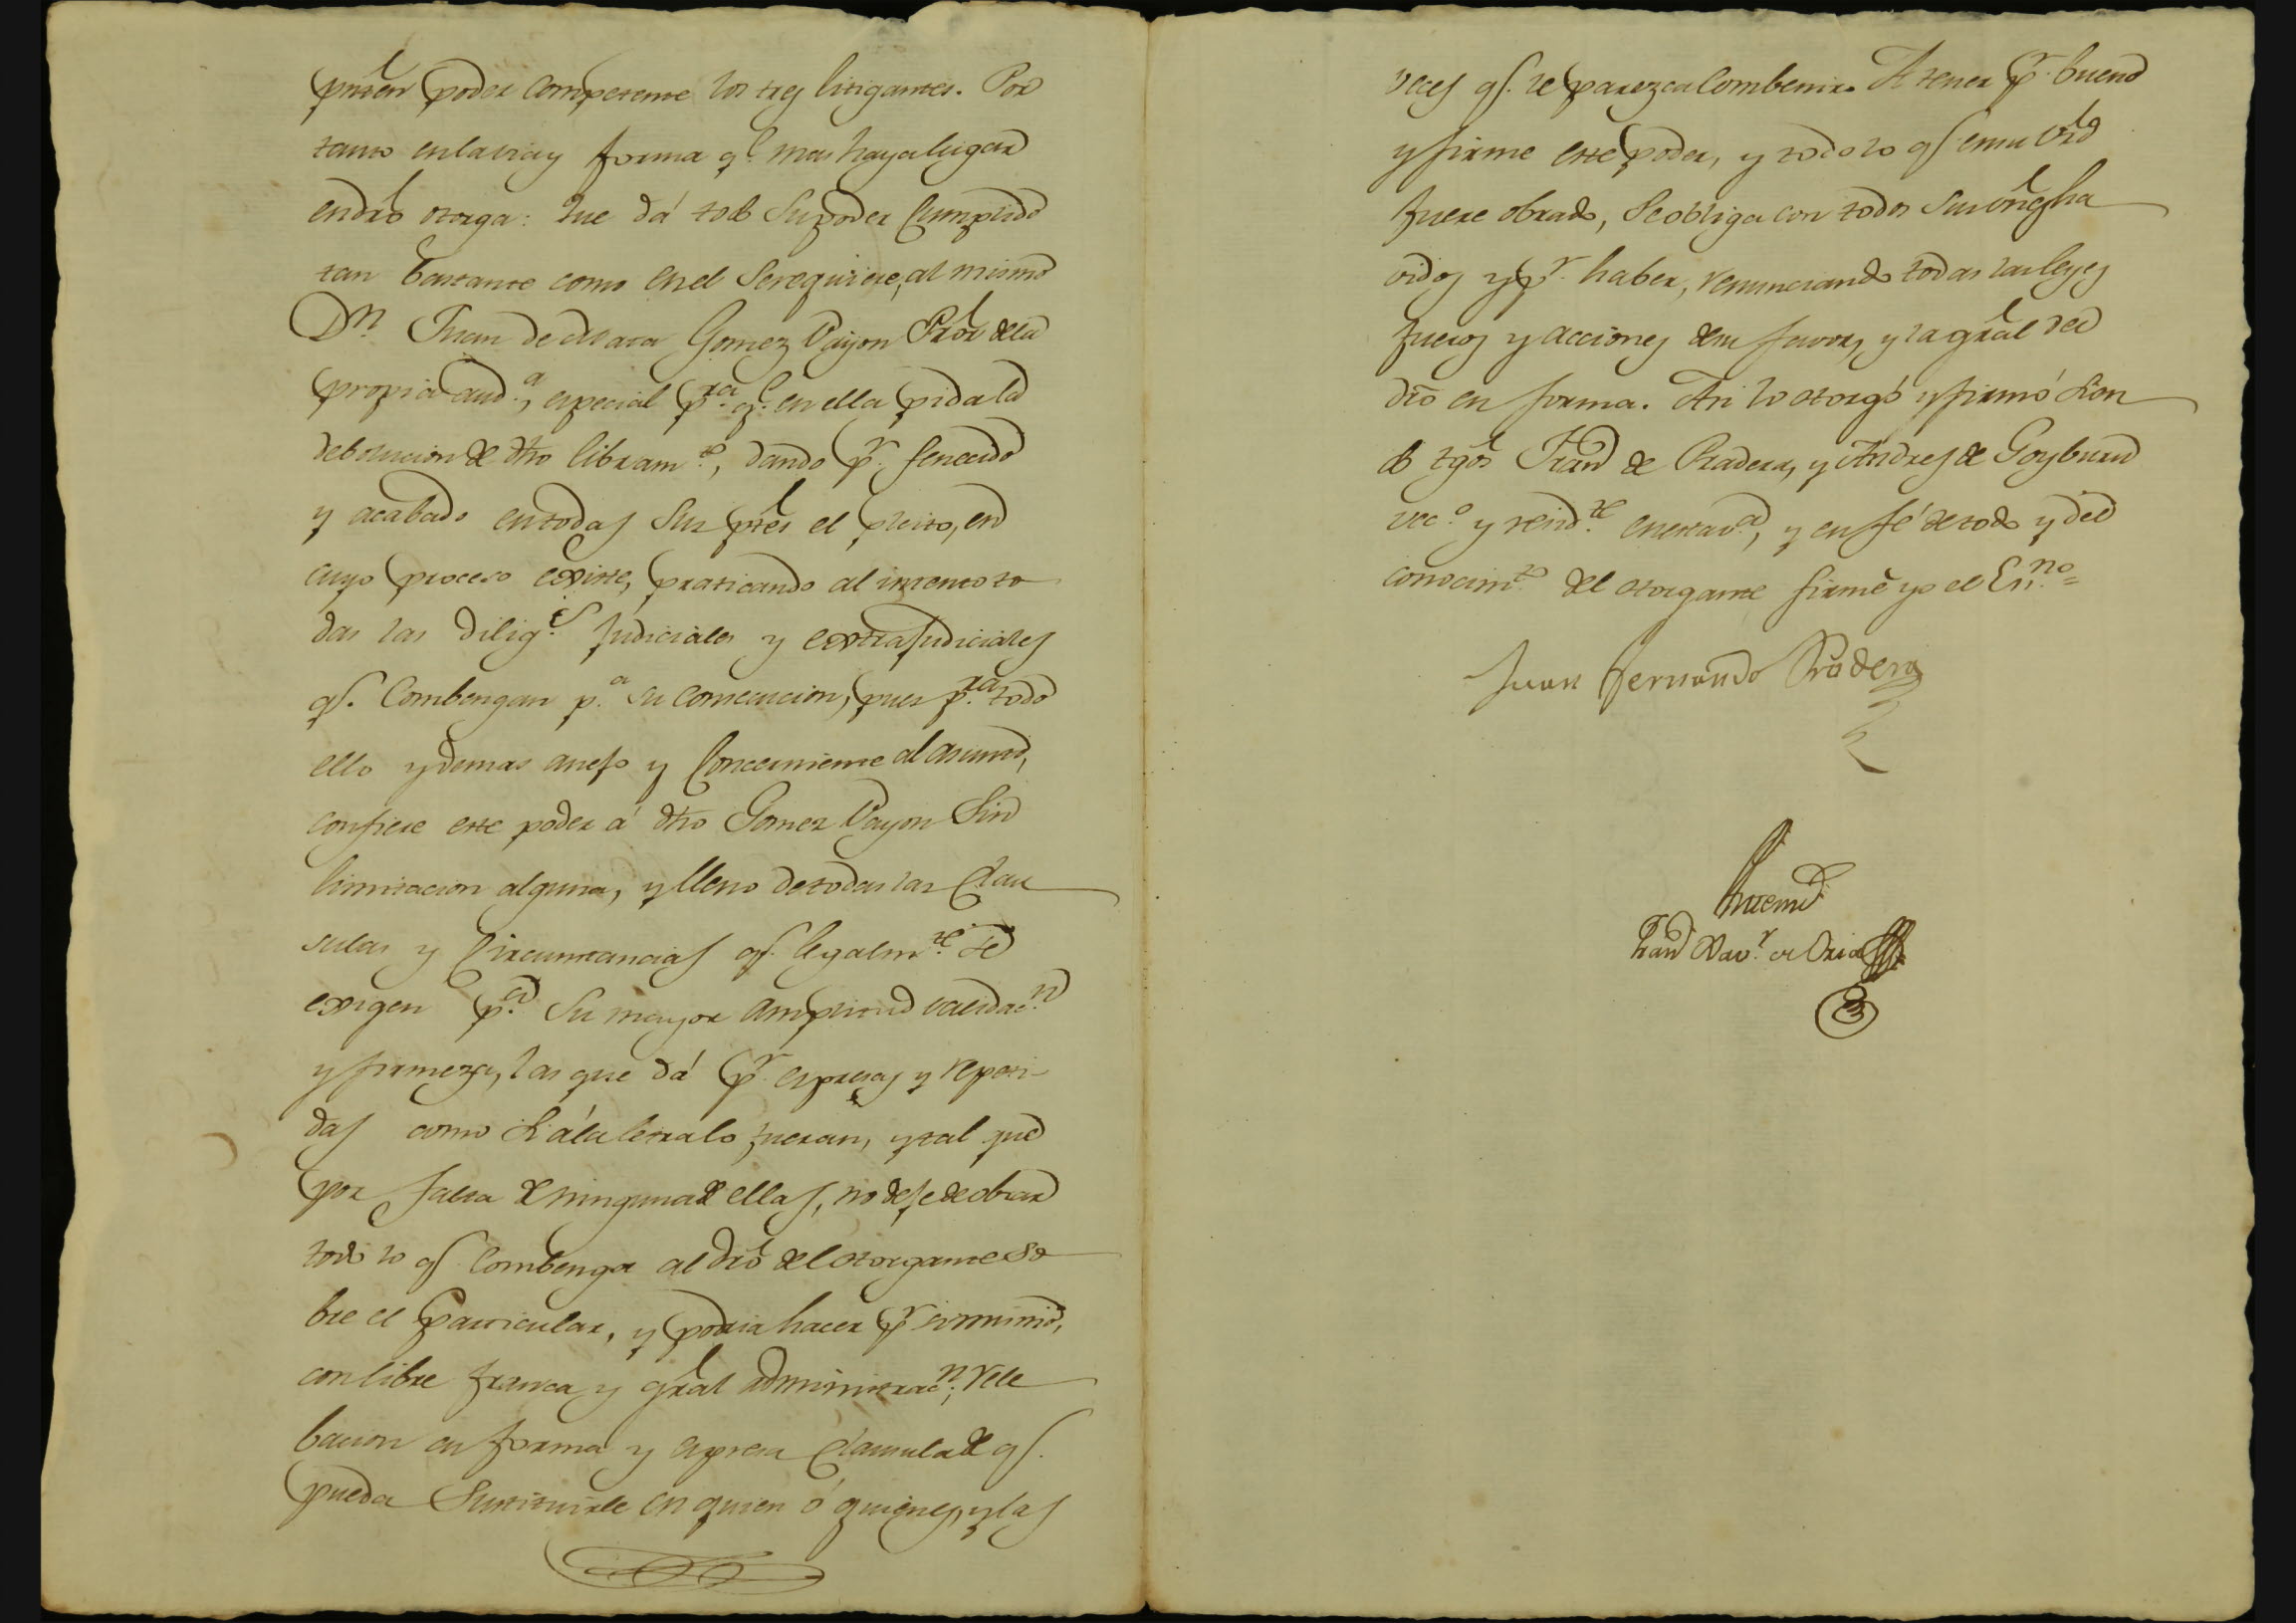 presten poder competente los tres litigantes. Por
tanto en la via y forma q.e mas haya lugar
en dro otorga: Que dá todo su poder cumplido
tan bastante como en el se requiere, al mismo
Dn. Juan de Mata Gomez Payon Prõr de la
propia aud.a, especial p.ra q.e en ella pida la
debolucion de dho libram.te, dando p.r fenecido
y acabado en todas sus ptes el pleito, en
cuyo proceso existe, praticando al intento to
das las dilig.s judiciales y extrajudiciales
qe. combengan p.a su consecucion, pues p.ra todo
ello y demas anejo y concerniente al asunto,
confiere este poder á dho Gomez Payon sin
limitacion alguna, y lleno de todas las clau
sulas y circunstancias qe. legalm.te se
exigen p.a su mayor amplitud validac.n
y firmeza, las que dá p.r espresas y repeti-
das como si á la letra lo fueran, y tal que
por falta de ninguna de ellas, no deje de obrar
todo lo qe combenga al dro del otorgante so
bre el particular, y podria hacer p.r si mismo,
con libre franca y gral administrac.n; rele
bacion en forma y espresa clausula de qe.
pueda sustituirle en quien ó quienes, y las
veces qe. le parezca combenir. A tener p.r bueno
y firme este poder, y todo lo qe en su vrd
fuere obrado, se obliga con todos sus vnes ha
vidos y p.r haber, renunciando todas las leyes
fueros y acciones de su favor, y la gral del
dro en forma. Asi lo otorgó y firmó sien
do tgos Fran.co de Pradera, y Andres de Goyburu
vec.o y resid.te en esta v.a, y en fé de todo y del
conocim.to del otorgante firmé yo el Es.no =
Juan Fernando Pradera
Antemi
Fran.co Xav.r de Oria